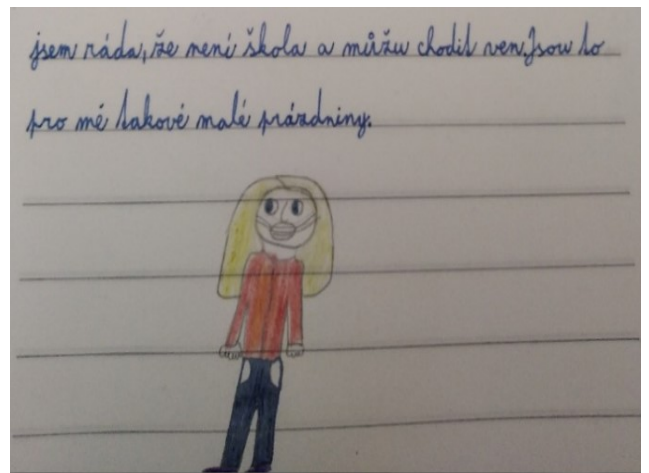 jsem ráda, že není škola a můžu chodit ven. Jsou to
pro mé takové malé prázdniny.